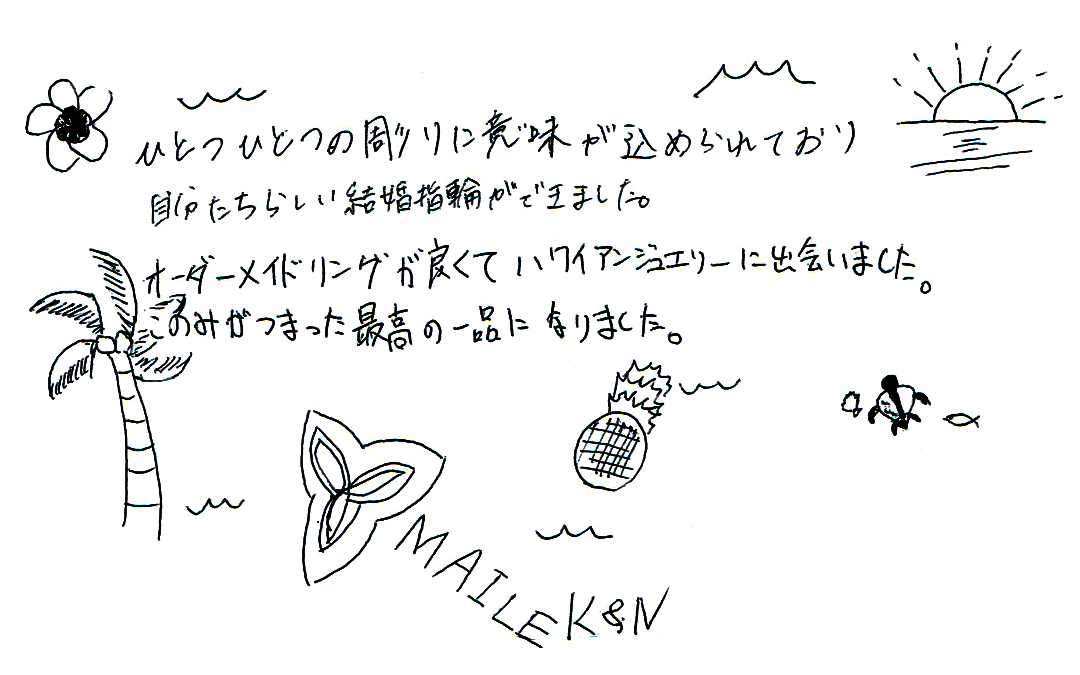 ひとつひとつの彫りに意味が込められており
自分たちらしい結婚指輪ができました。
オーダーメイドリングが良くてハワイアンジュエリーに出会いました。
このみがつまった最高の一品になりました。
MAILE K&N